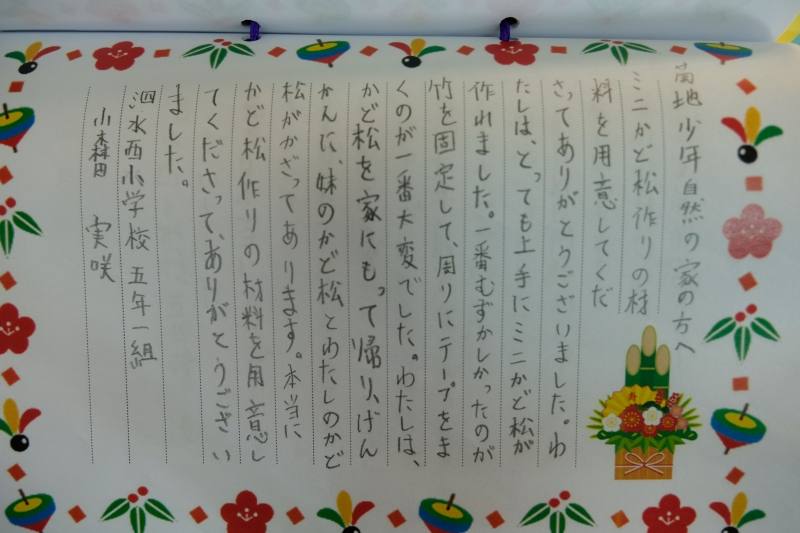 菊地少年自然の家の方へ
ミニかど松作りの材
料を用意してくだ
さってありがとうございました。わ
たしは、とっても上手にミニかど松が
作れました。一番むずかしかったのが
竹を固定して、周りにテープをま
くのが一番大変でした。わたしは、
かど松を家にもって帰り、げん
かんに、妹のかど松とわたしのかど
松がかざってあります。本当に
かど松作りの材料を用意し
てくださって、ありがとうござい
ました。
泗水西小学校 五年一組
小森田 実咲